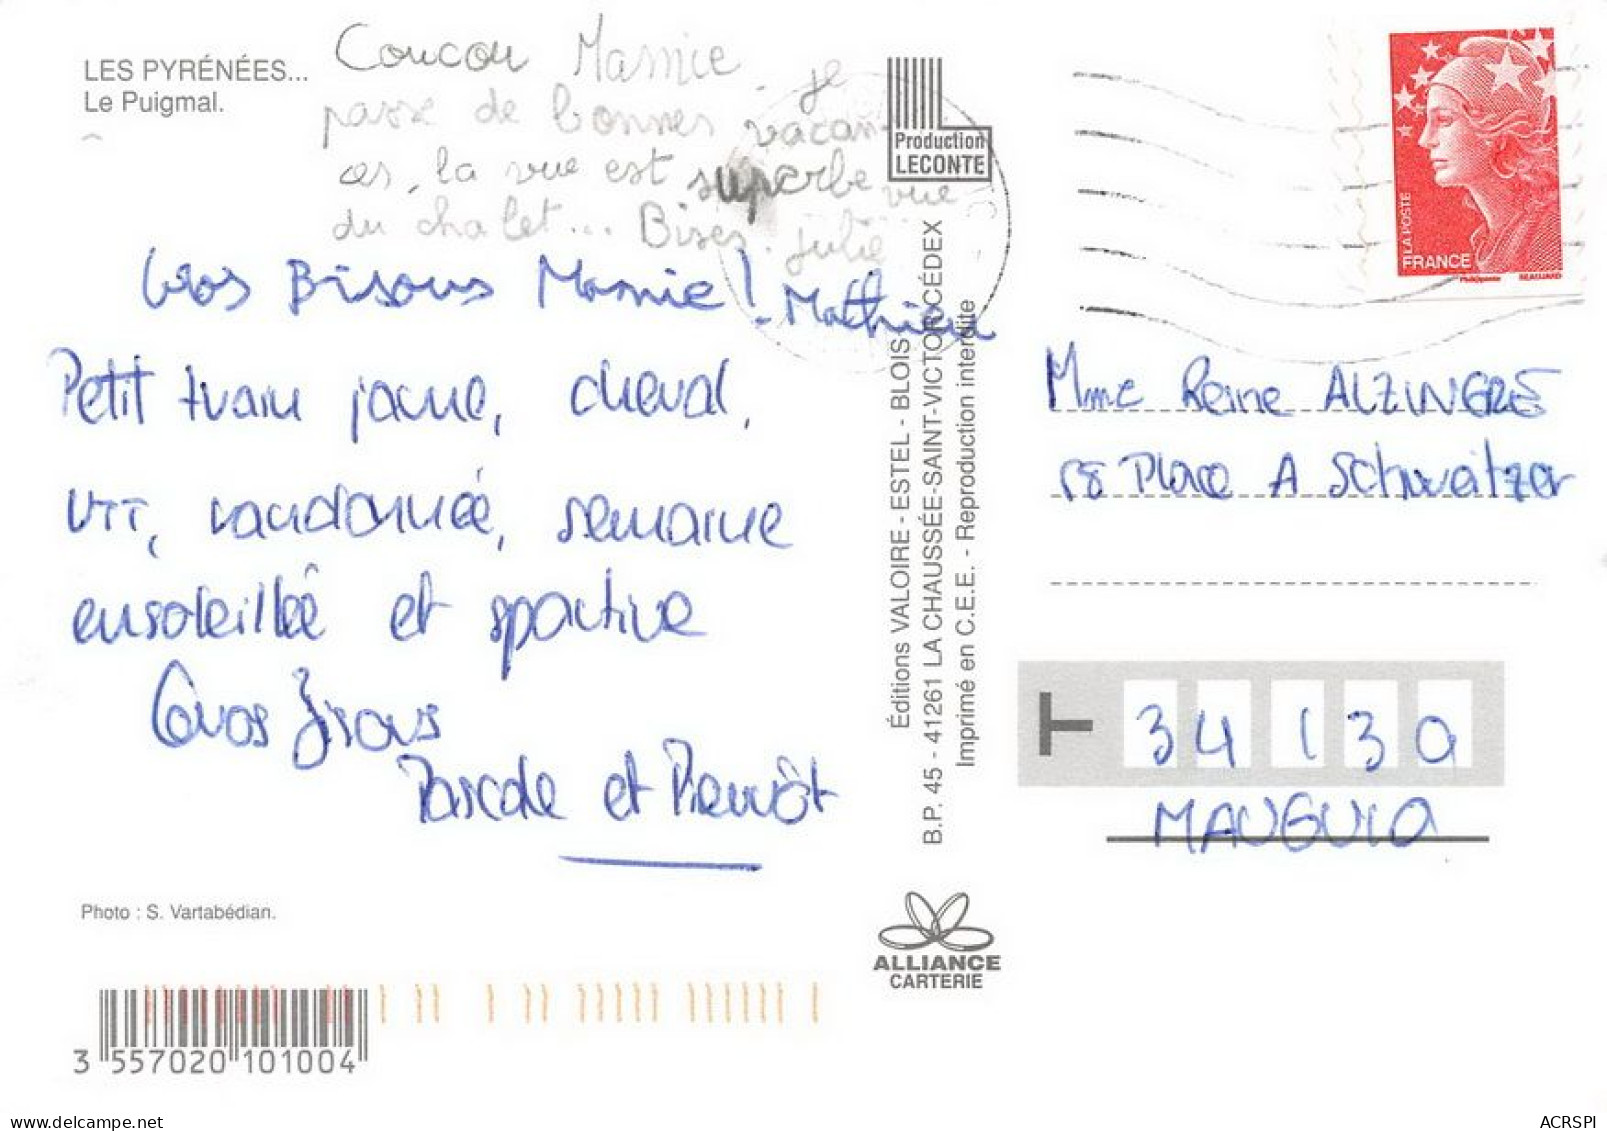 LES PYRÉNÉES...
Le Puigmal.
Coucou Mamie, je
passe de bonnes vacan-
ces, la vue est superbe vue
du chalet... Bises. Julie
Gros Bisous Mamie! Mathieu
Petit train jaune, cheval,
VTT, randonnée, semaine
ensoleillée et sportive
Gros Bisous
Pascale et Benoît
Photo : S. Vartabédian.
3 557020 101004
Production
LECONTE
Éditions VALOIRE - ESTEL - BLOIS
B.P. 45 - 41261 LA CHAUSSÉE-SAINT-VICTOR CÉDEX
Imprimé en C.E.E. - Reproduction interdite
ALLIANCE
CARTERIE
LA POSTE
FRANCE
BEAUJARD
Mme Reine ALZINGRE
Place A Schweitzer
T 34130
MAUGUIO
delcampe.net
ACRSPI